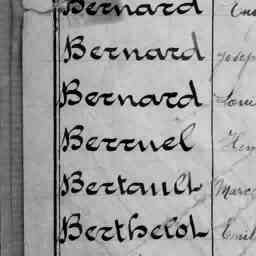 Bernard
Bernard Joseph
Bernard Loui
Berruel Hen
Bertault Marc
Berthelot Emil